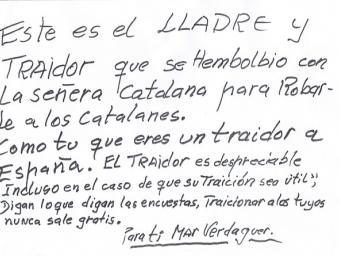 Este es el LLADRE y
TRAidor que se Hembolbio con
La señera Catalana para Robar-
le a los Catalanes.
Como tu que eres un traidor a
España. EL TRAidor es despreciable
Incluso en el caso de que su Traición sea útil;;
Digan lo que digan las encuestas, Traicionar a los tuyos
nunca sale gratis.
Para ti Mar Verdaguer.